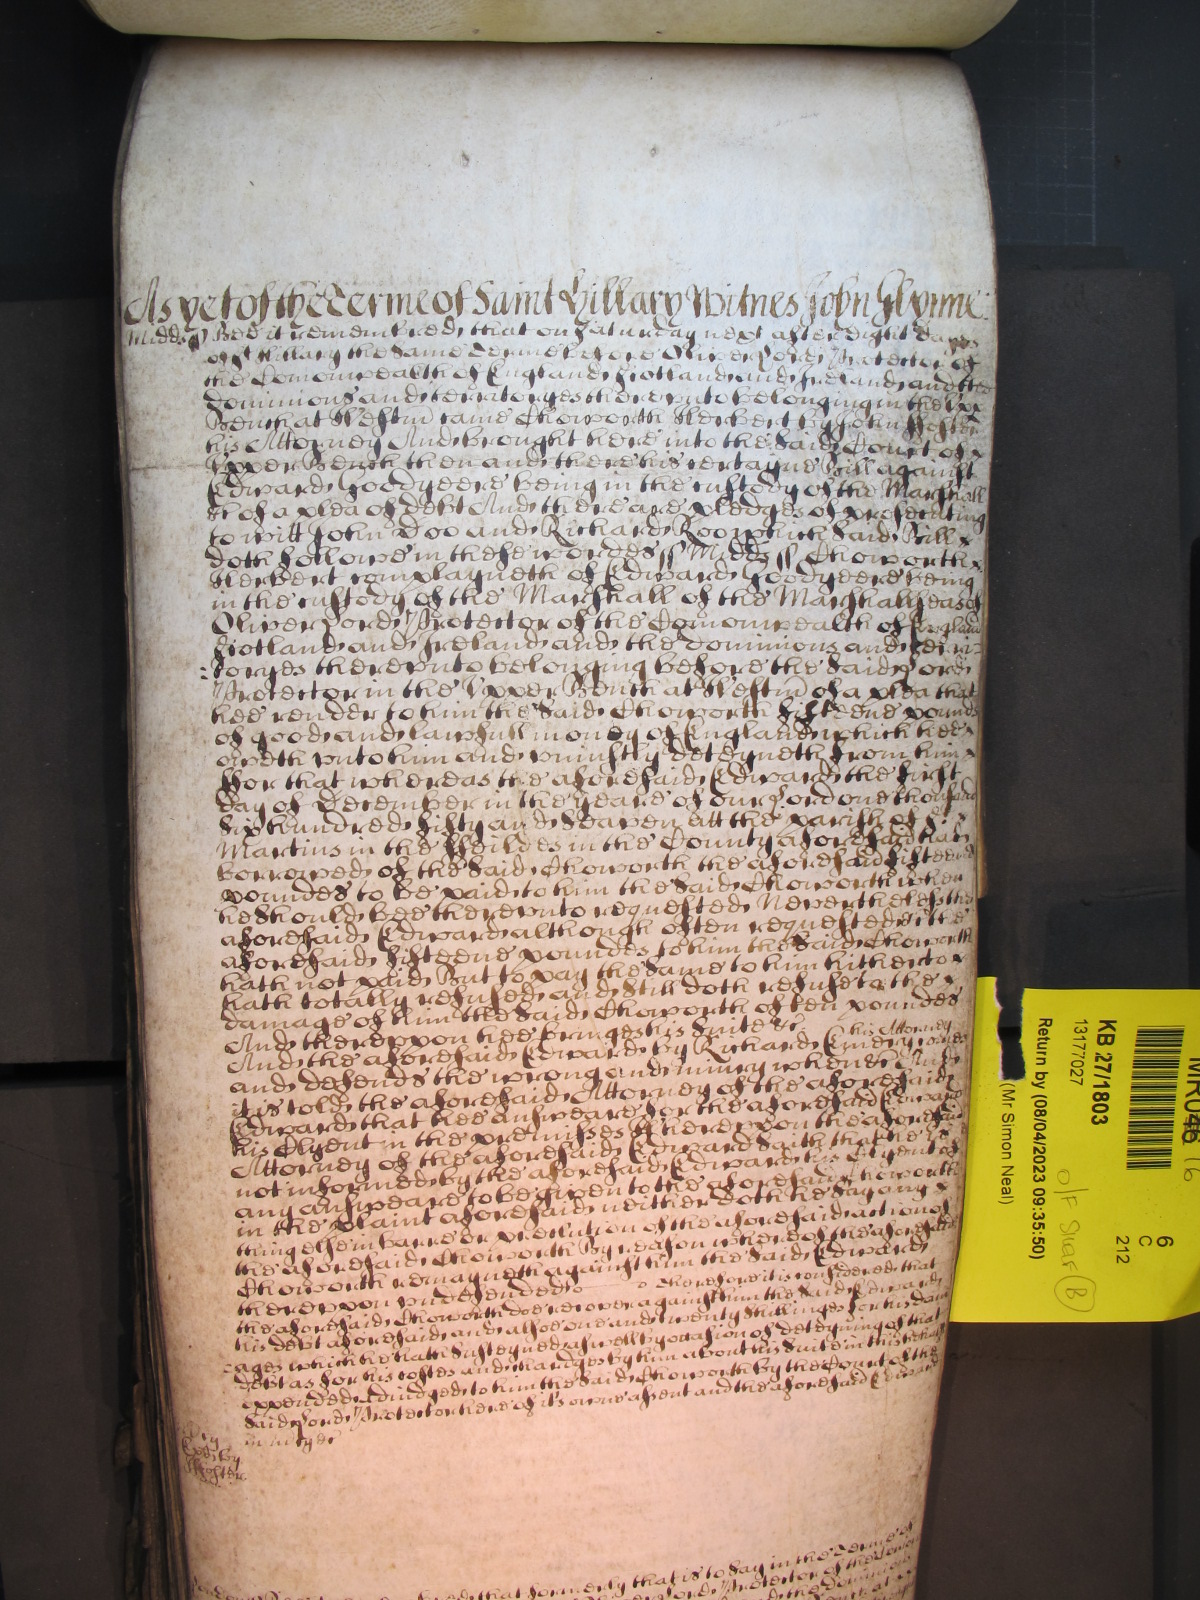 As yet of the Terme of Saint Hillary Witnes John Glynne
Midds ss Bee it remembred that on Saturday next after Eight dayes
of St Hillary the same Terme before Oliver Lord Protector of
the Comonwealth of England Scotland and Ireland and the
dominions and territoryes thereunto belonging in the Upper
Bench at Westm came Choworth Herbert by John
his Attorney And brought here into the said Court of
Upper Bench then and there his certayne Bill against
Edward Goodyeere being in the custody of the Marshall
&c of a plea of debt And there are pledges of prosecuting
to witt John Doo and Richard Roo which said Bill
doth followe in these wordes ss Midds ss Choworth
Herbert complayneth of Edward Goodyeere being
in the custody of the Marshall of the Marshallseas of
Oliver Lord Protector of the Comonwealth of England
Scotland and Ireland and the dominions and terri-
:toryes thereunto belonging before the said Lord
Protector in the Upper Bench at Westm of a plea that
hee render to him the said Choworth fifteene pounds
of good and lawfull money of England which hee
oweth unto him and uniustly deteyneth from him
For that whereas the aforesaid Edward the first
day of December in the yeare of our Lord one thousand
six hundred fifty and seaven att the parish of St
Martins in the Feildes in the County aforesaid had
borrowed of the said Choworth the aforesaid fifteene
poundes to be paid to him the said Choworth when
he should bee thereunto requested Neverthelesse the
aforesaid Edward although often requested the
aforesaid fifteene poundes to him the said Choworth
hath not paid But to pay the same to him hitherto
hath totally refused and still doth refuse to the
damage of him the said Choworth of ten poundes
And thereupon hee bringes his suite &c
And the aforesaid Edward by Richard Emery his Attorney comes
and defends the wrong and iniury when &c And
it is told the aforesaid Attorney of the aforesaid
Edward that hee answeare for the aforesaid Edward
his Clyent in the premisses Whereupon the aforesaid
Attorney of the aforesaid Edward saith that he is
not informed by the aforesaid Edward his Clyent of
any answeare to be given to the aforesaid Choworth
in the plaint aforesaid neither doth he say any
thing else in barre or preclution of the aforesaid action of
the aforesaid Choworth By reason whereof the aforesaid
Choworth remayneth against him the said Edward
thereupon undefended Therefore it is considered that
the aforesaid Choworth doe recover against him the said Edward
his debt aforesaid and alsoe one and twenty shillinges for his dam
ages which he hath susteyned aswell by occasion of deteyning of that
debt as for his costes and chardges by him about his suite in this behalfe
expended Adiudged to him the said Choworth by the Court of the
said Lord Protector here of its owne assent and the aforesaid Edward
in mercy &c
formerly that is to say in the Terme of
Lord Protector of the
KB 27/1803
13177027
Return by (08/04/2023 09:35:50)
(Mr Simon Neal)
6
C
212
O/F Shelf B